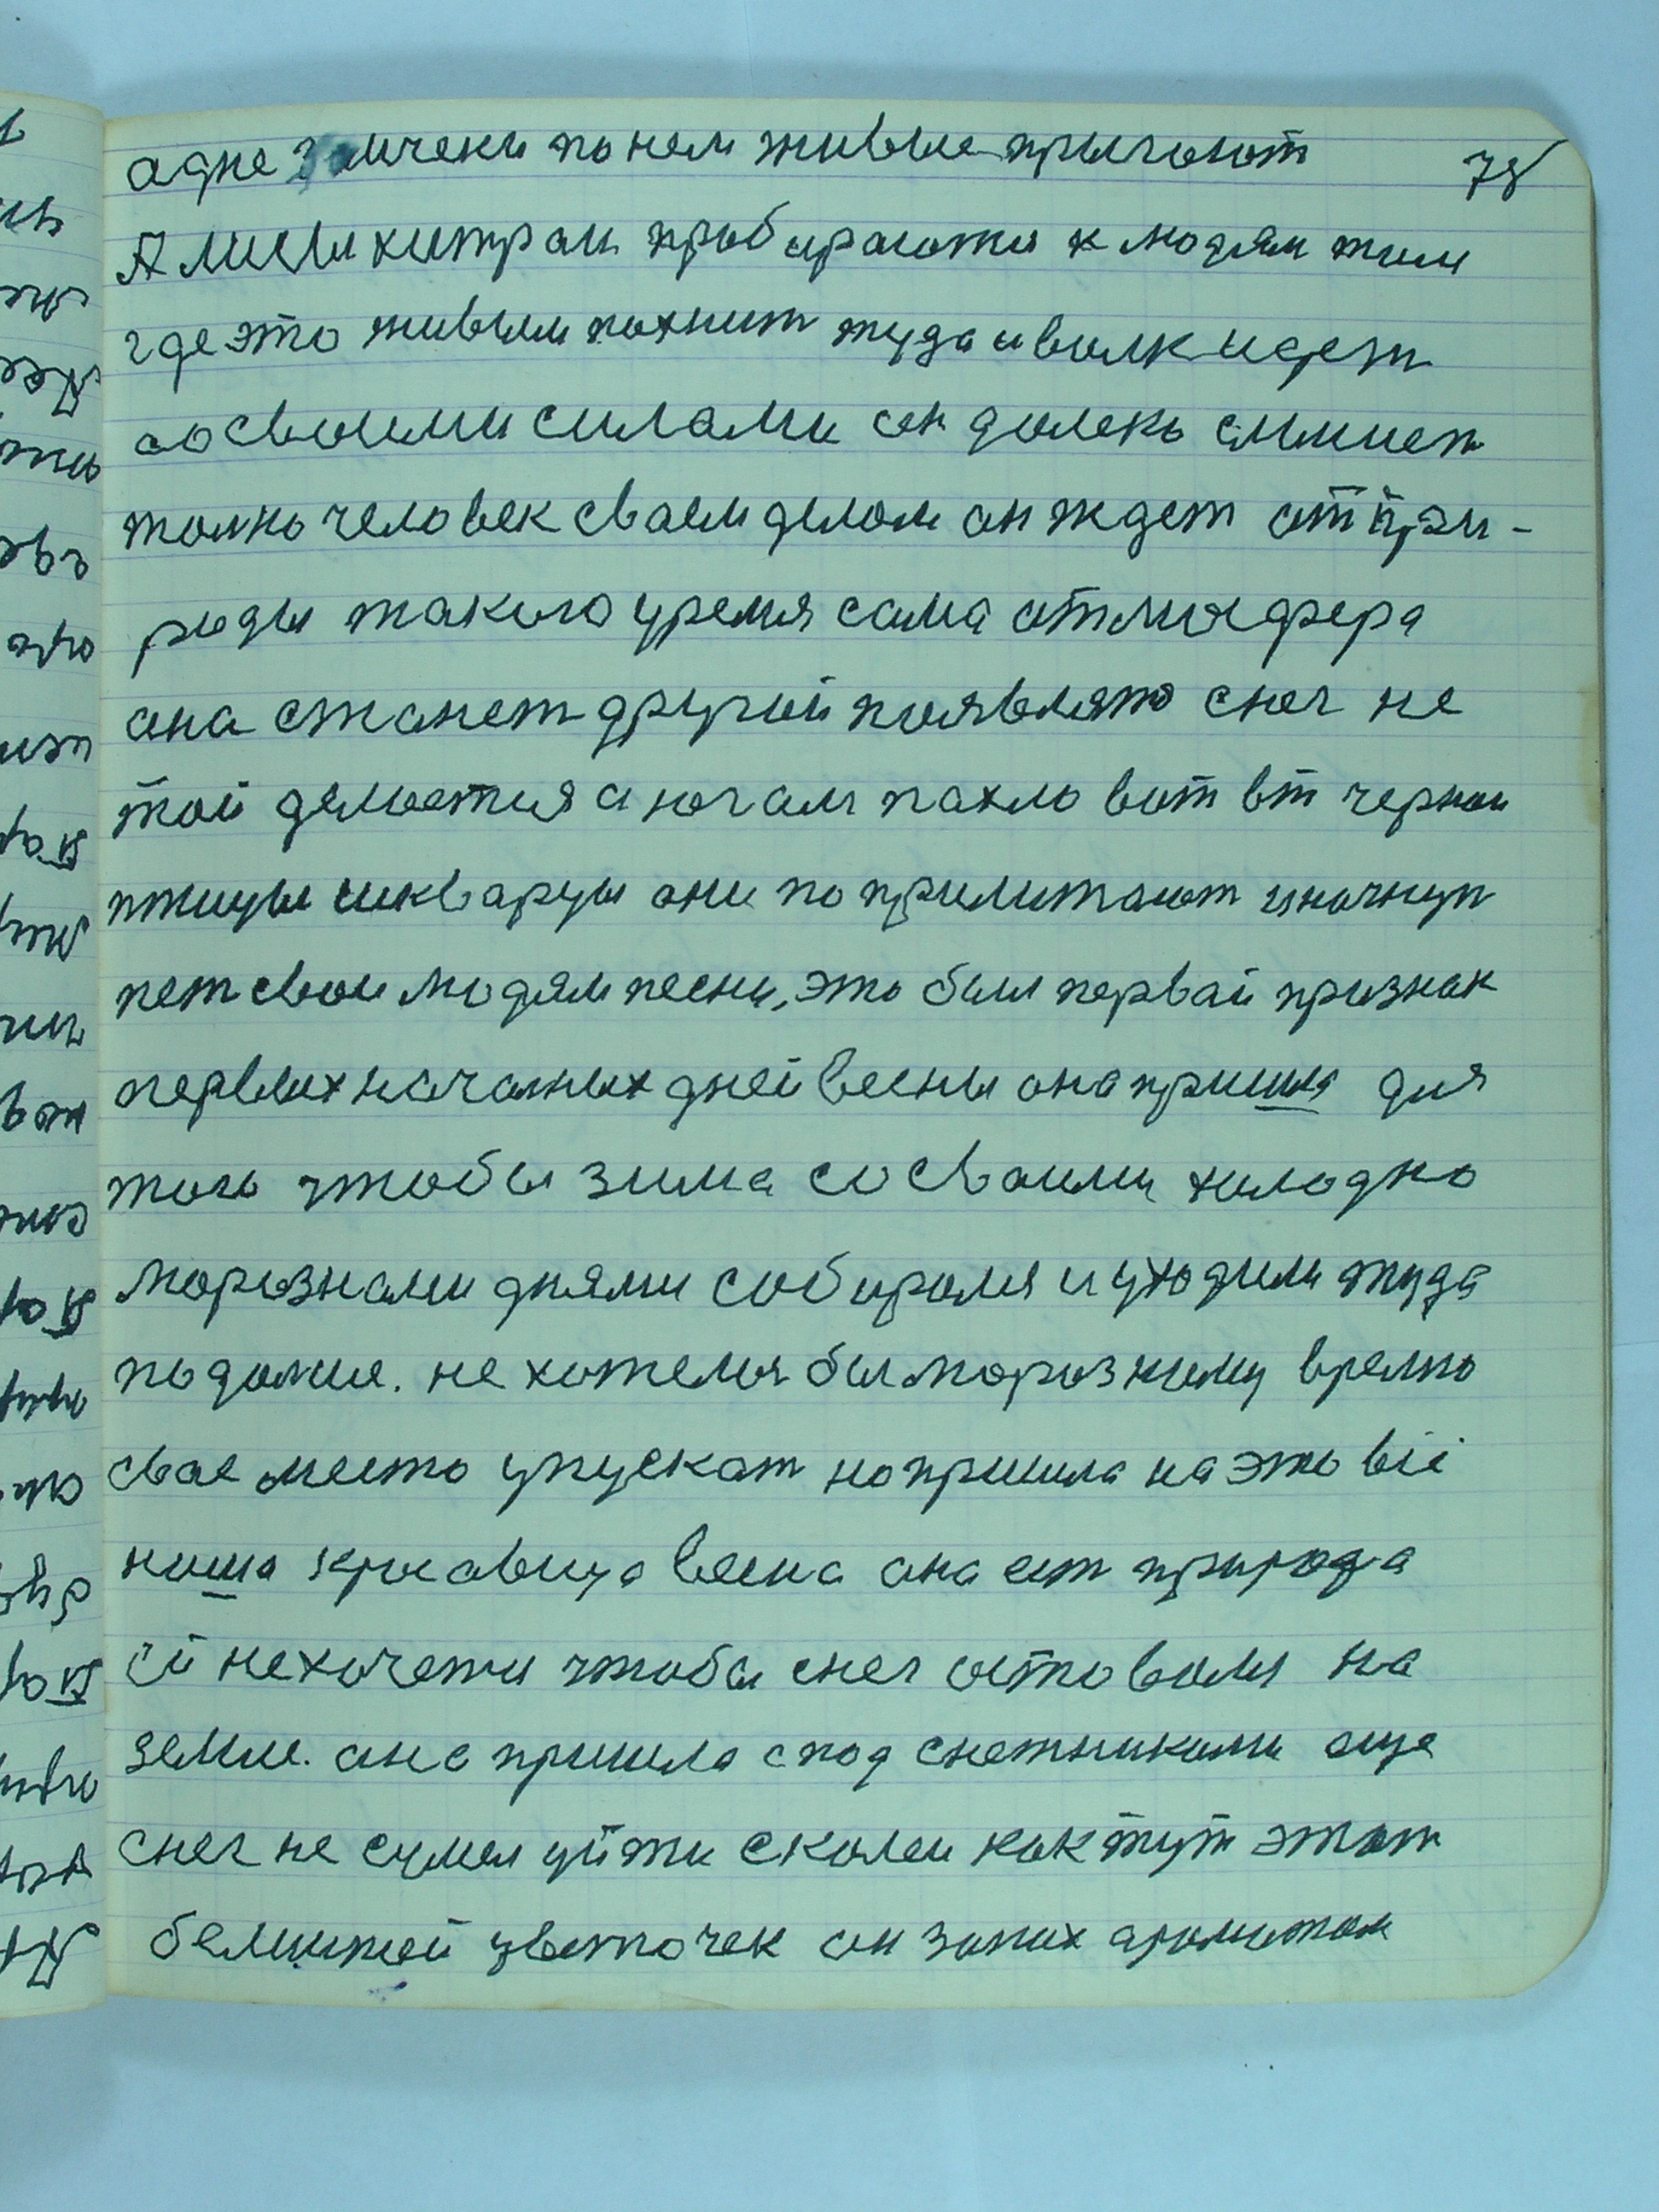 78
адне заичеки по нем живые прыгают
А лисы хитраи прабираются к людям тим
где это живым пахнит туда и волк идет
со своими силами он далеко слышет
толко человек сваем делом он ждет от при-
роды такого уремя сама атмосфера
она станет другой появлято снег не
той делается а югам пахло вот вт чернои
птицы шкварцы они по прилитают и начнут
пет свои людям песни, это был первай признак
первых началных дней весны она пришла для
того чтобы зима со сваими холодно
морозными днями собиралися и уходили туда
подалше. не хотелся бы морозниму время
свае место упускат но пришла на это віі
наша красавица весна она ест природа
ей нехочется чтобы снег оставался на
земли. она пришла спод снетниками еще
снег не сумел уйти сколеи как тут этот
белинкей цветочек он запах ароматом